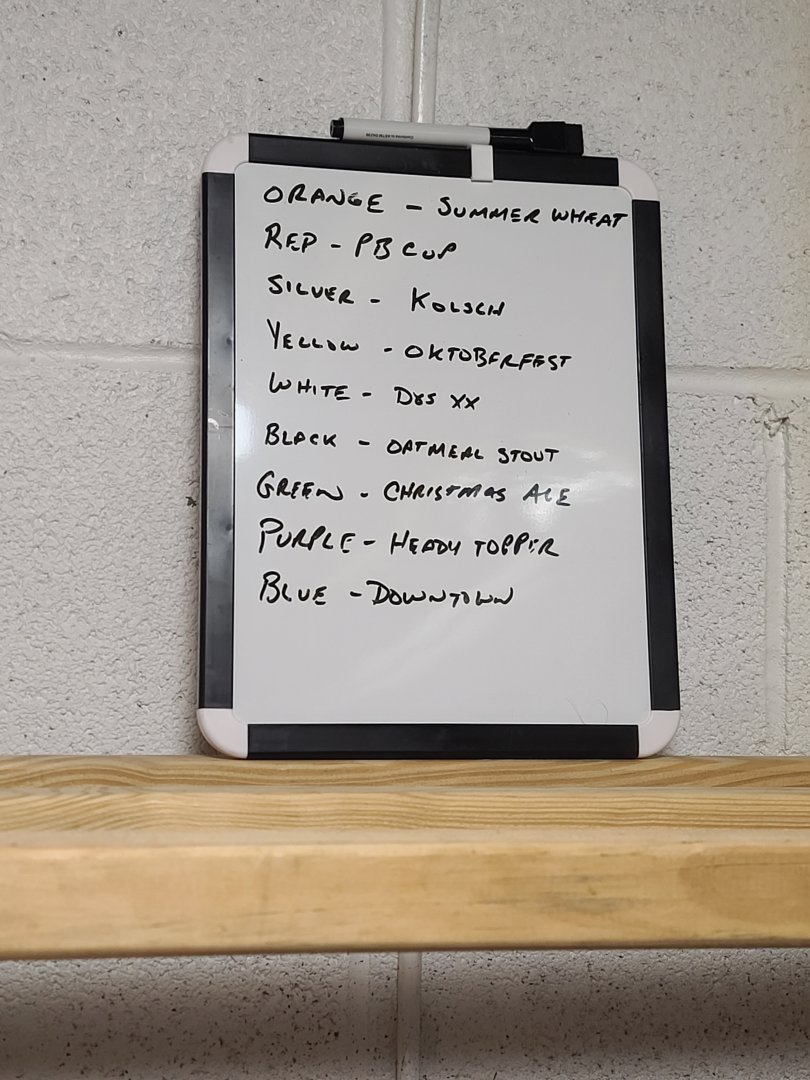 ORANGE - SUMMER WHEAT
RED - PB CUP
SILVER - KOLSCH
YELLOW - OKTOBERFEST
WHITE - DOS XX
BLACK - OATMEAL STOUT
GREEN - CHRISTMAS ALE
PURPLE - HEADY TOPPER
BLUE - DOWNTOWN